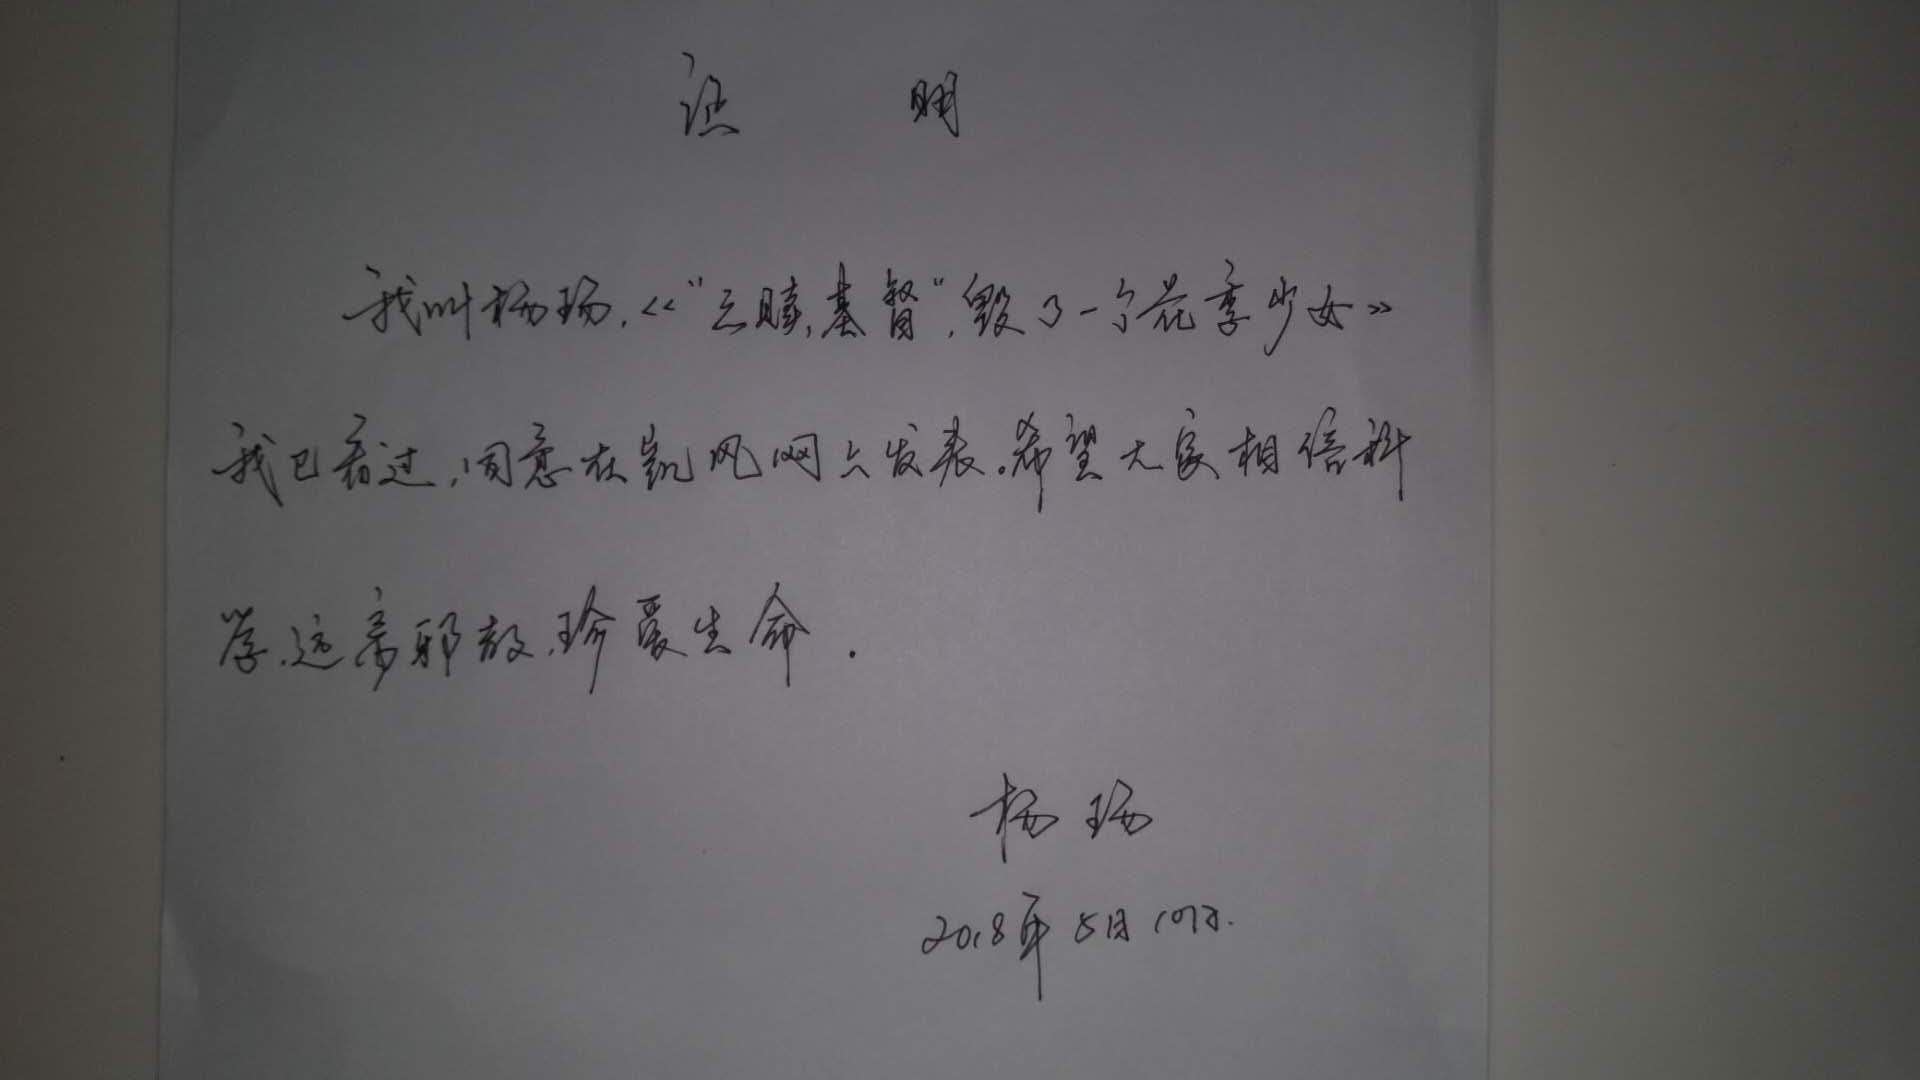 证 明
我叫杨玚,《"三赎,基督",毁了一个花季少女》
我已看过,同意在凯风网上发表。希望大家相信科
学,远离邪教,珍爱生命.
杨玚
2018年5月10日.